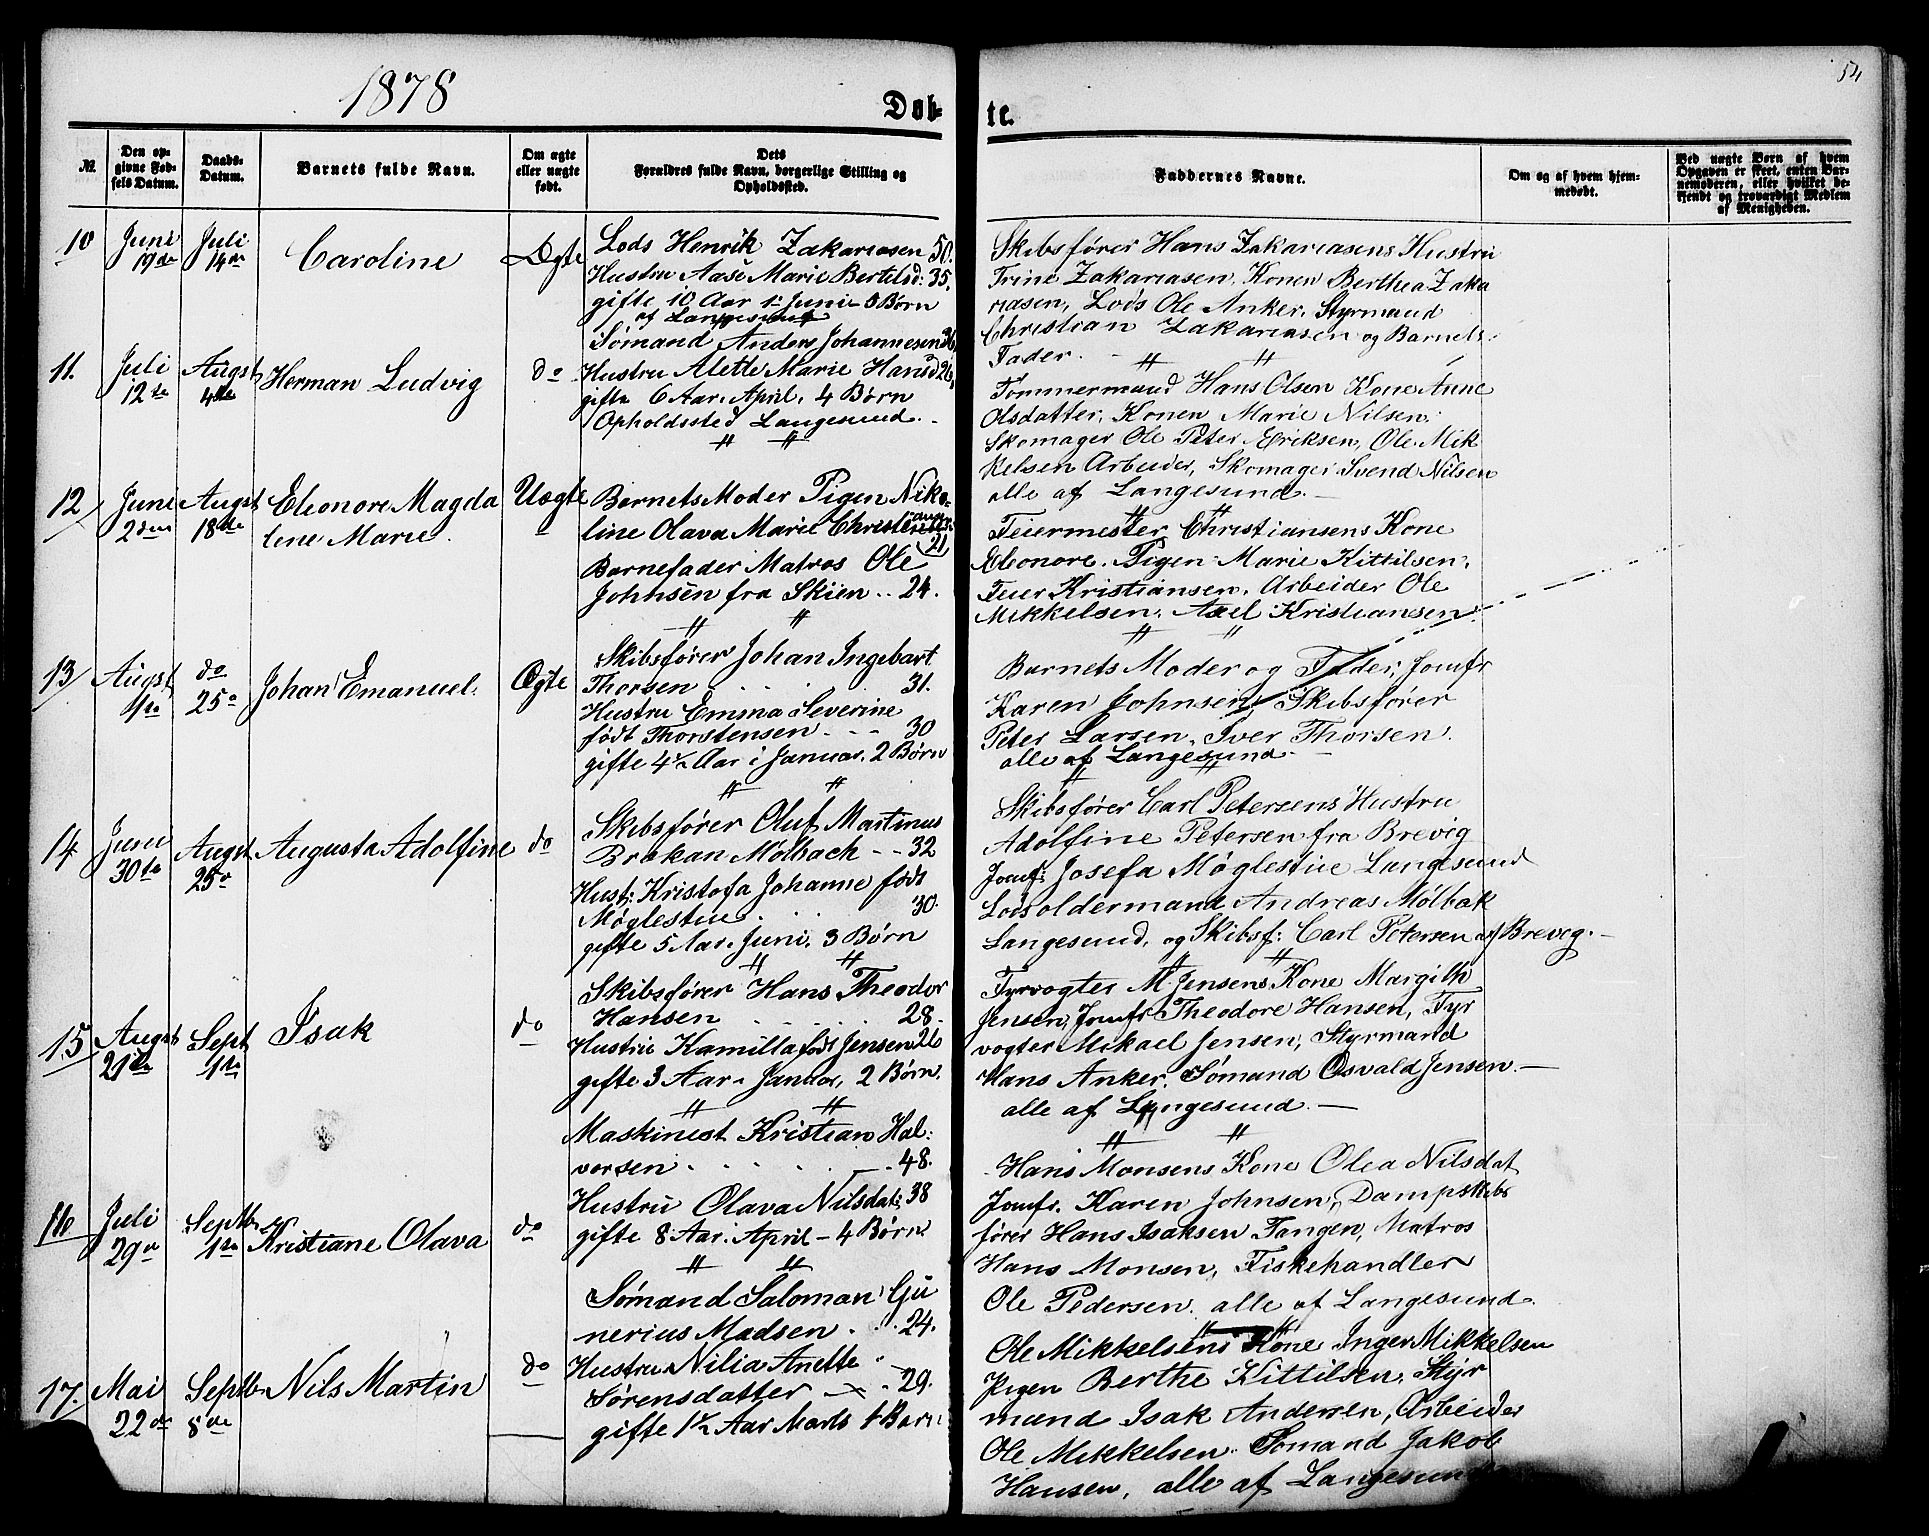 1878
54
Døb-
te.
№
Den op-
givne Fød-
sels Datum.
Daabs-
Datum.
Barnets fulde Navn.
Om ægte
eller uægte
født.
Dets
Forældres fulde Navn, borgerlige Stilling og
Opholdssted.
Faddernes Navne.
Om og af hvem hjem-
medøbt.
Ved uægte Børn af hvem
Opgaven er skeet, enten Bar-
nemoderen, eller hvilket be-
kjendt og troværdigt Medlem
af Menigheden.
10
Juni
19de
Juli
14de
Caroline
Ægte
Lods Henrik Zakariasen 50.
Hustru Aase Marie Bertilsd: 35.
gifte 10 Aar 1' Juni Børn
af Langesund
Skibsfører Hans Zakariasens Hustru
Trine Zakariasen, Konen Berthea Zaka
riasen, Lods Ole Anker, Styrmand
Christian Zakariasen og Barnets
Fader.
11.
Juli
12te
Augst
4de
Herman Ludvig
do
Sømand Anders Johannesen 36,
Hustru Alette Marie Hansd 26,
gifte 6 Aar April, 4 Børn
Opholdssted Langesund.
Tømmermand Hans Olsen Kone Anne
Olsdatter, Konen Marie Nilsen,
Skomager Ole Peter Eriksen, Ole Mik
kelsen Arbeider, Skomager Svend Nilsen
alle af Langesund.
12
Juni
2den
Augst
18de
Eleonore Magda
lene Marie.
Uægte
Barnets Moder Pigen Niko-
line Olava Marie
21
Barnefader Matros Ole
Johnsen fra Skien .. 24.
Feiermester Christiansens Kone
Eleonore. Pigen Marie Kittilsen,
Feier Kristiansen, Arbeider Ole
Mikkelsen, Axel Kristiansen.
13
Augst
1ste
do
25de
Johan Emanuel.
Ægte
Skibsfører Johan Ingebart
Thorsen . . . . 31.
Hustru Emma Severine
født Thorstensen - - 30
gifte 4½ Aar i Januar, 2 Børn
Barnets Moder og Fader, Jomfr
Karen Johnsen, Skibsfører
Peter Larsen, Iver Thorsen.
alle af Langesund
14
Juni
30te
Augst
25de
Augusta Adolfine
do
Skibsfører Oluf Martinus
Brokan Mølbach - - 32
Hust: Kristofa Johanne født
Møglestue . . . 30.
gifte 5 Aar. Juni, 3 Børn
Skibsfører Carl Petersens Hustru
Adolfine Petersen fra Brevig
Jomf: Josefa Møglestue Langesund
Lodsoldermand Andreas Mølbak
Langesund, og Skibsf: Carl Petersen af Brevig.
15
Augst
21de
Sept
1ste
Isak
do
Skibsfører Hans Theodor
Hansen . . . . 28.
Hustru Kamilla født Jensen 26
gifte 3 Aar i Januar, 2 Børn.
Fyrvogter M. Jensens Kone Margith
Jensen, Jomfr Theodore Hansen, Fyr
vogter Mikael Jensen, Styrmand
Hans Anker. Sømand Osvald Jensen.
alle af Langesund.
16
Juli
29de
Septb
1ste
Kristiane Olava
do
Maskinest Kristian Hal:
vorsen . . . . . 48.
Hustru Olava Nilsdat: 38
gifte 8 Aar. April - 4 Børn
Hans Monsens Kone Olea Nilsdat
Jomfr. Karen Johnsen, Dampskibs
fører Hans Isaksen Tangen, Matros
Hans Monsen, Fiskehandler
Ole Pedersen. alle af Langesund.
17.
Mai
22de
Septb
8de
Nils Martin
do
Sømand Saloman Gu
nerius Madsen . . 24.
Hustru Nilia Anette
Sørensdatter - . 29.
gifte 1½ Aar Marts 1 Barn
Ole Mikkelsens Kone Inger Mikkelsen
Pigen Berthe Kittilsen, Styr
mand Isak Andersen, Arbeider
Ole Mikkelsen. Sømand Jakob
Hansen, alle af Langesund